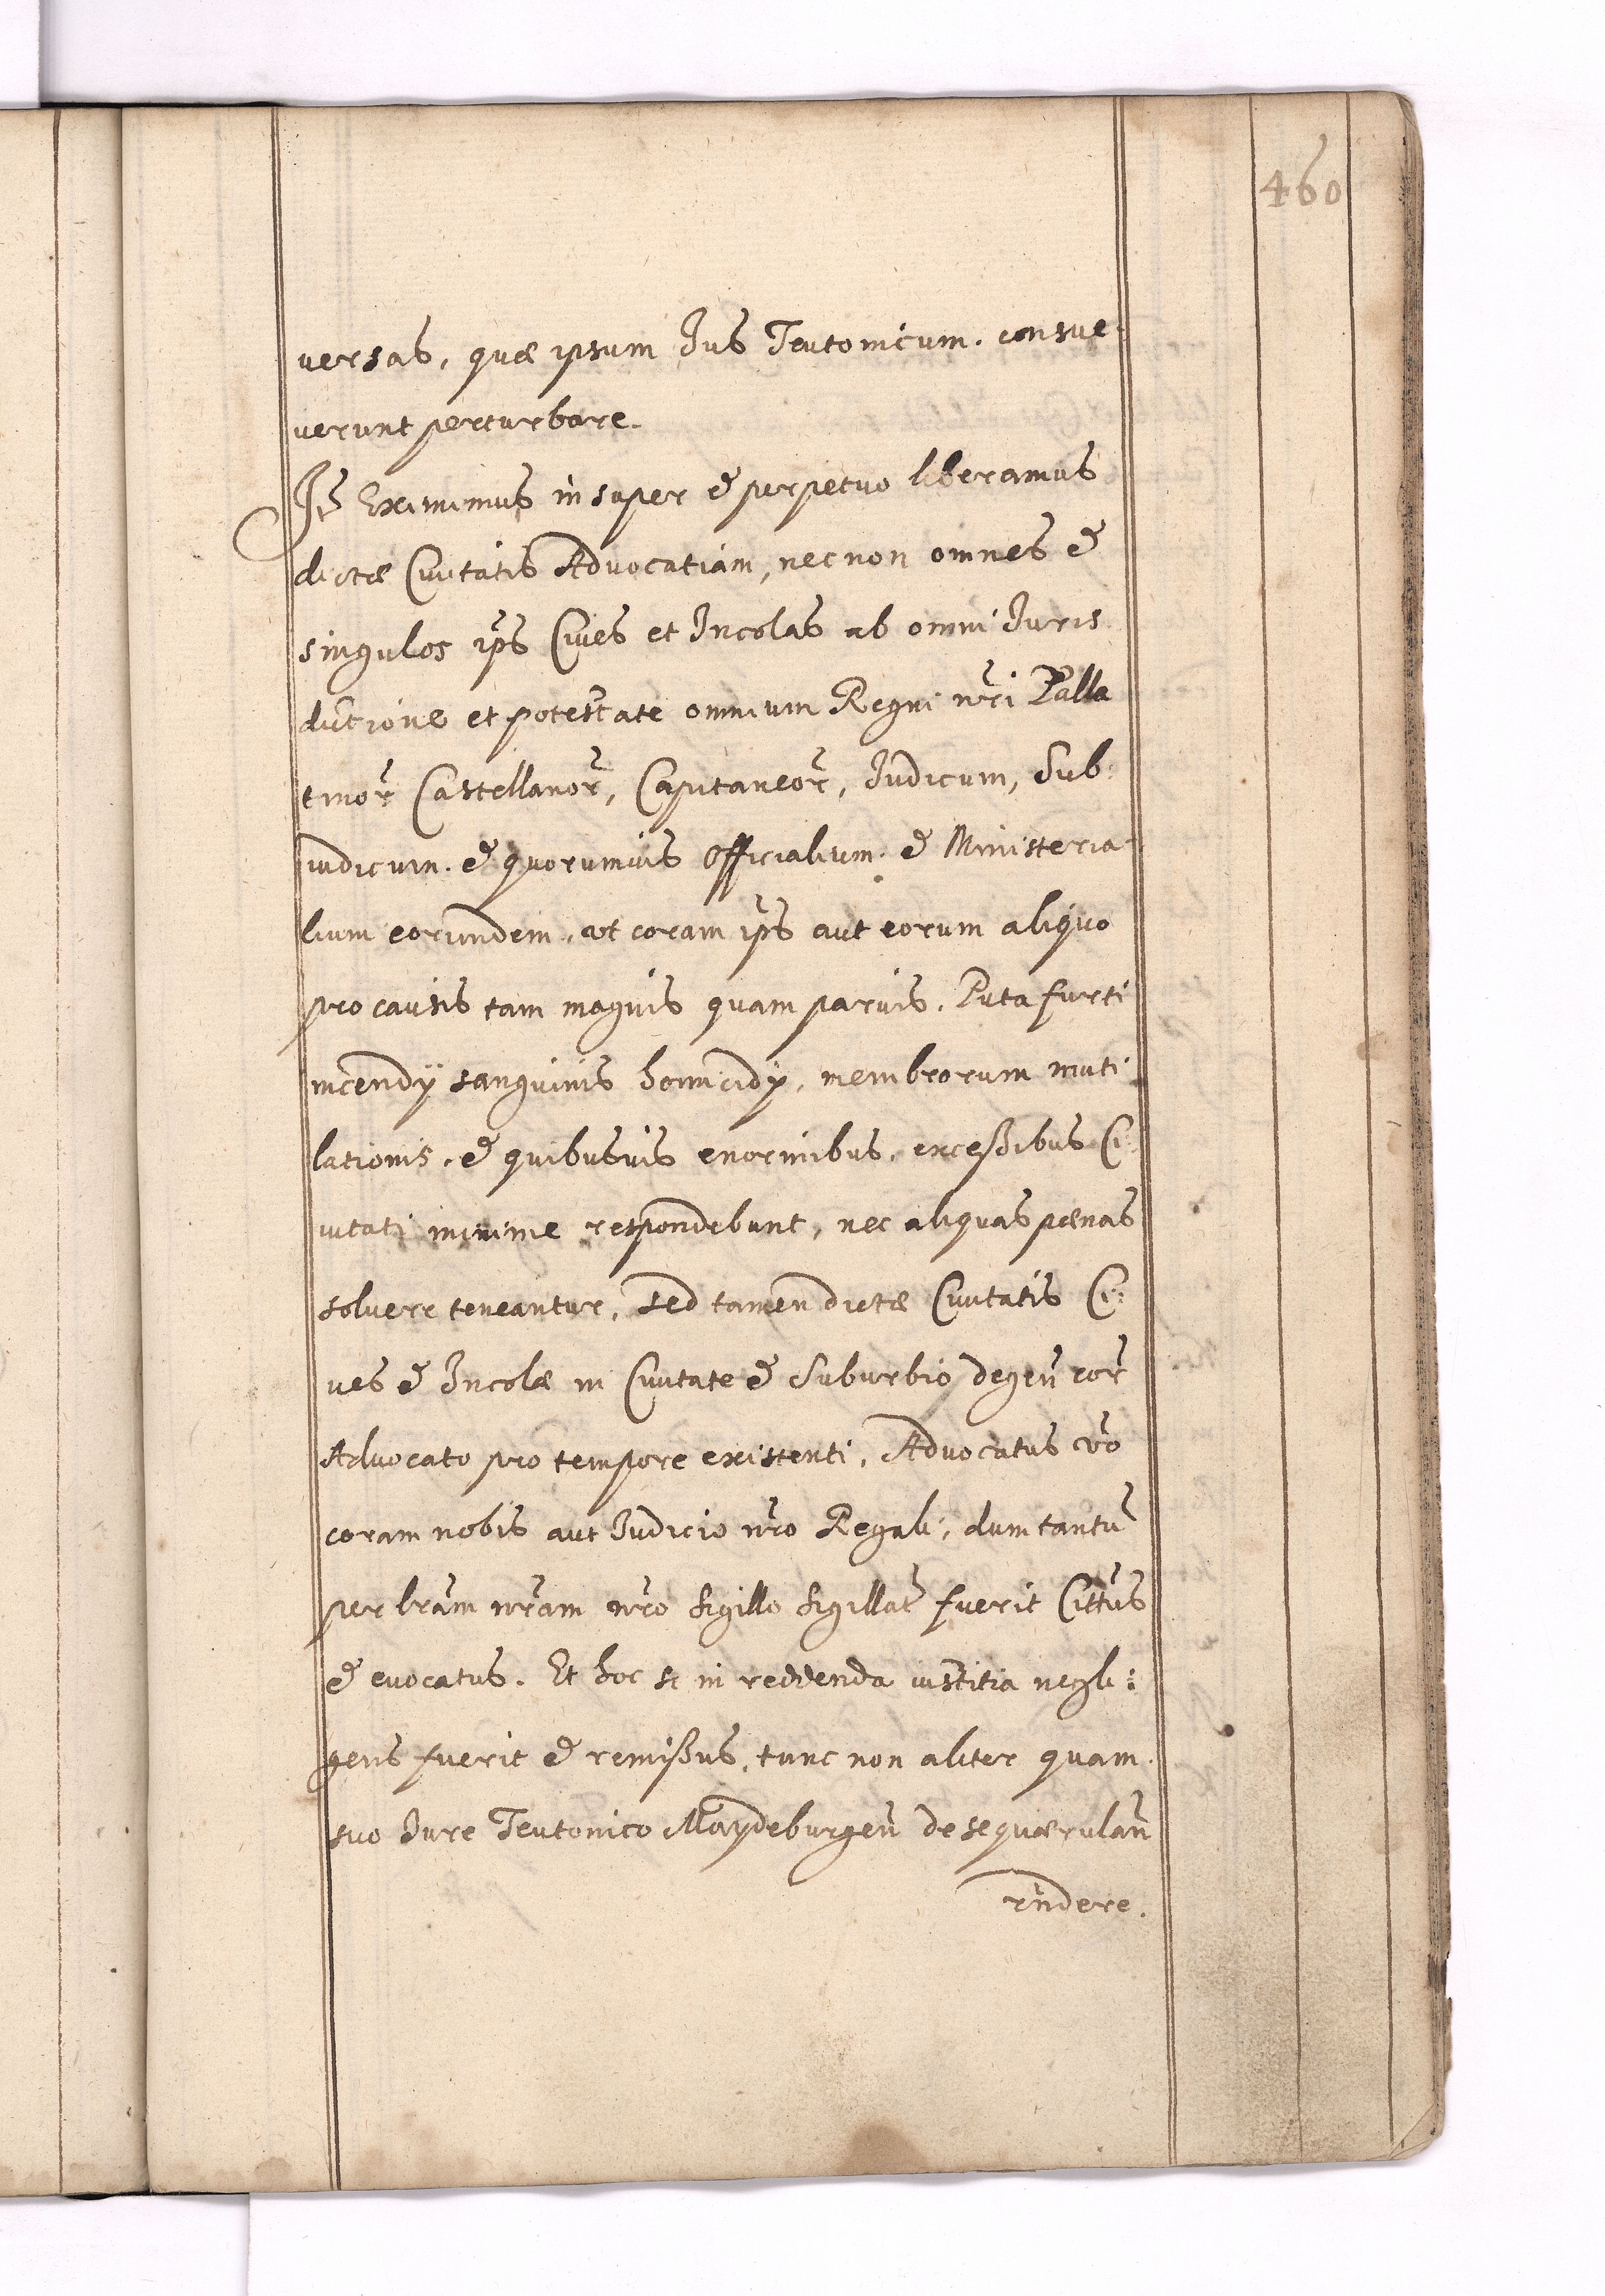 460
versas, quæ ipsum Jus Teutonicum. consue-
verunt perturbare.
Jtẽ Eximimus insuper & perpetuo liberamus
dictæ Civitatis Advocatiam, nec non omnes &
singulos ip̃s Cives et Jncolas ab omni Juris
dictione et potestate omnium Regni nr̃i Palla
tinor̃ Castellanor̃, Capitaneor̃, Judicum, Sub:
iudicum. & quorumvis Officialium. & Ministeria-
lium eorundem, ut coram ip̃s aut eorum aliquo
pro causis tam magnis quam parvis. Puta furti
incendÿ sanguinis homicidÿ, membrorum muti
lationis, & quibusvis enormibus, excessibus Ci
vitati minime respondebunt, nec aliquas pœnas
solvere teneantur, sed tamen dictæ Civitatis Ci:
ves & Jncolæ in Civitate & Suburbio degen̄ cor̃
Advocato pro tempore existenti, Advocatus vr̃o
coram nobis aut Judicio nr̃o Regali, dum tantũ
per lr̃am nr̃am nr̃o Sigillo Sigillat̃ fuerit Cittũs
& evocatus. Et hoc si in reddenda iustitia negli:
gens fuerit & remissus, tunc non aliter quam
suo Jure Teutonico Maydeburgen̄ de se quærulan̄
rñdere.